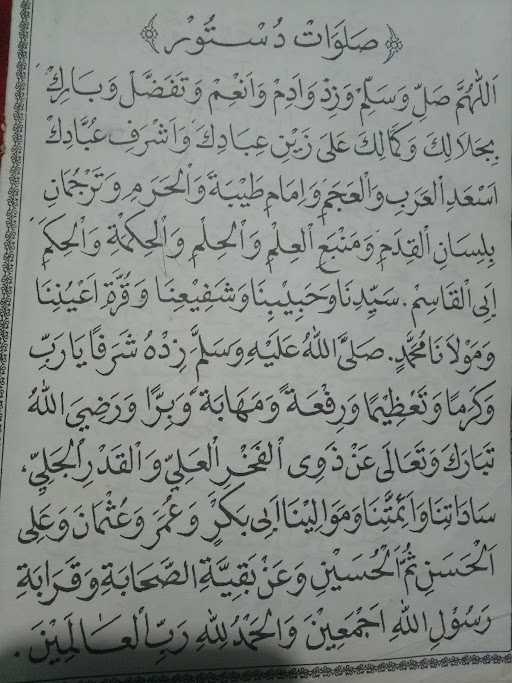 صَلَوَاتْ دُسْتُوْر
اَللّٰهُمَّ صَلِّ وَسَلِّمْ وَزِدْ وَاَدِمْ وَاَنْعِمْ وَتَفَضَّلْ وَبَارِكْ
بِجَلَالِكَ وَكَمَالِكَ عَلَى زَيْنِ عِبَادِكَ وَاَشْرَفِ عُبَّادِكَ
اَسْعَدِ الْعَرَبِ وَالْعَجَمِ وَاِمَامِ طَيْبَةَ وَالْحَرَمِ وَتَرْجُمَانِ
بِلِسَانِ الْقِدَمِ وَمَنْبَعِ الْعِلْمِ وَالْحِلْمِ وَالْحِكْمَةِ وَالْحِكَمِ
اَبِى الْقَاسِمْ. سَيِّدِنَا وَحَبِيْبِنَا وَشَفِيْعِنَا وَقُرَّةِ اَعْيُنِنَا
وَمَوْلَانَا مُحَمَّدٍ. صَلَّى اللهُ عَلَيْهِ وَسَلَّمَ زِدْهُ شَرَفًا يَا رَبِّ
وَكَرَمًا وَتَعْظِيْمًا وَرِفْعَةً وَمَهَابَةً وَبِرًّا وَرَضِيَ اللهُ
تَبَارَكَ وَتَعَالَى عَنْ ذَوِى الْفَخْرِ الْعَلِيِّ وَالْقَدْرِ الْجَلِيِّ،
سَادَاتِنَا وَاَئِمَّتِنَا وَمَوَالِيْنَا اَبِى بَكْرٍ وَعُمَرَ وَعُثْمَانَ وَعَلِى
اَلْحَسَنِ ثُمَّ الْحُسَيْنِ وَعَنْ بَقِيَّةِ الصَّحَابَةِ وَقَرَابَةِ
رَسُوْلِ اللهِ اَجْمَعِيْنَ وَالْحَمْدُ لِلهِ رَبِّ الْعَالَمِيْنَ.